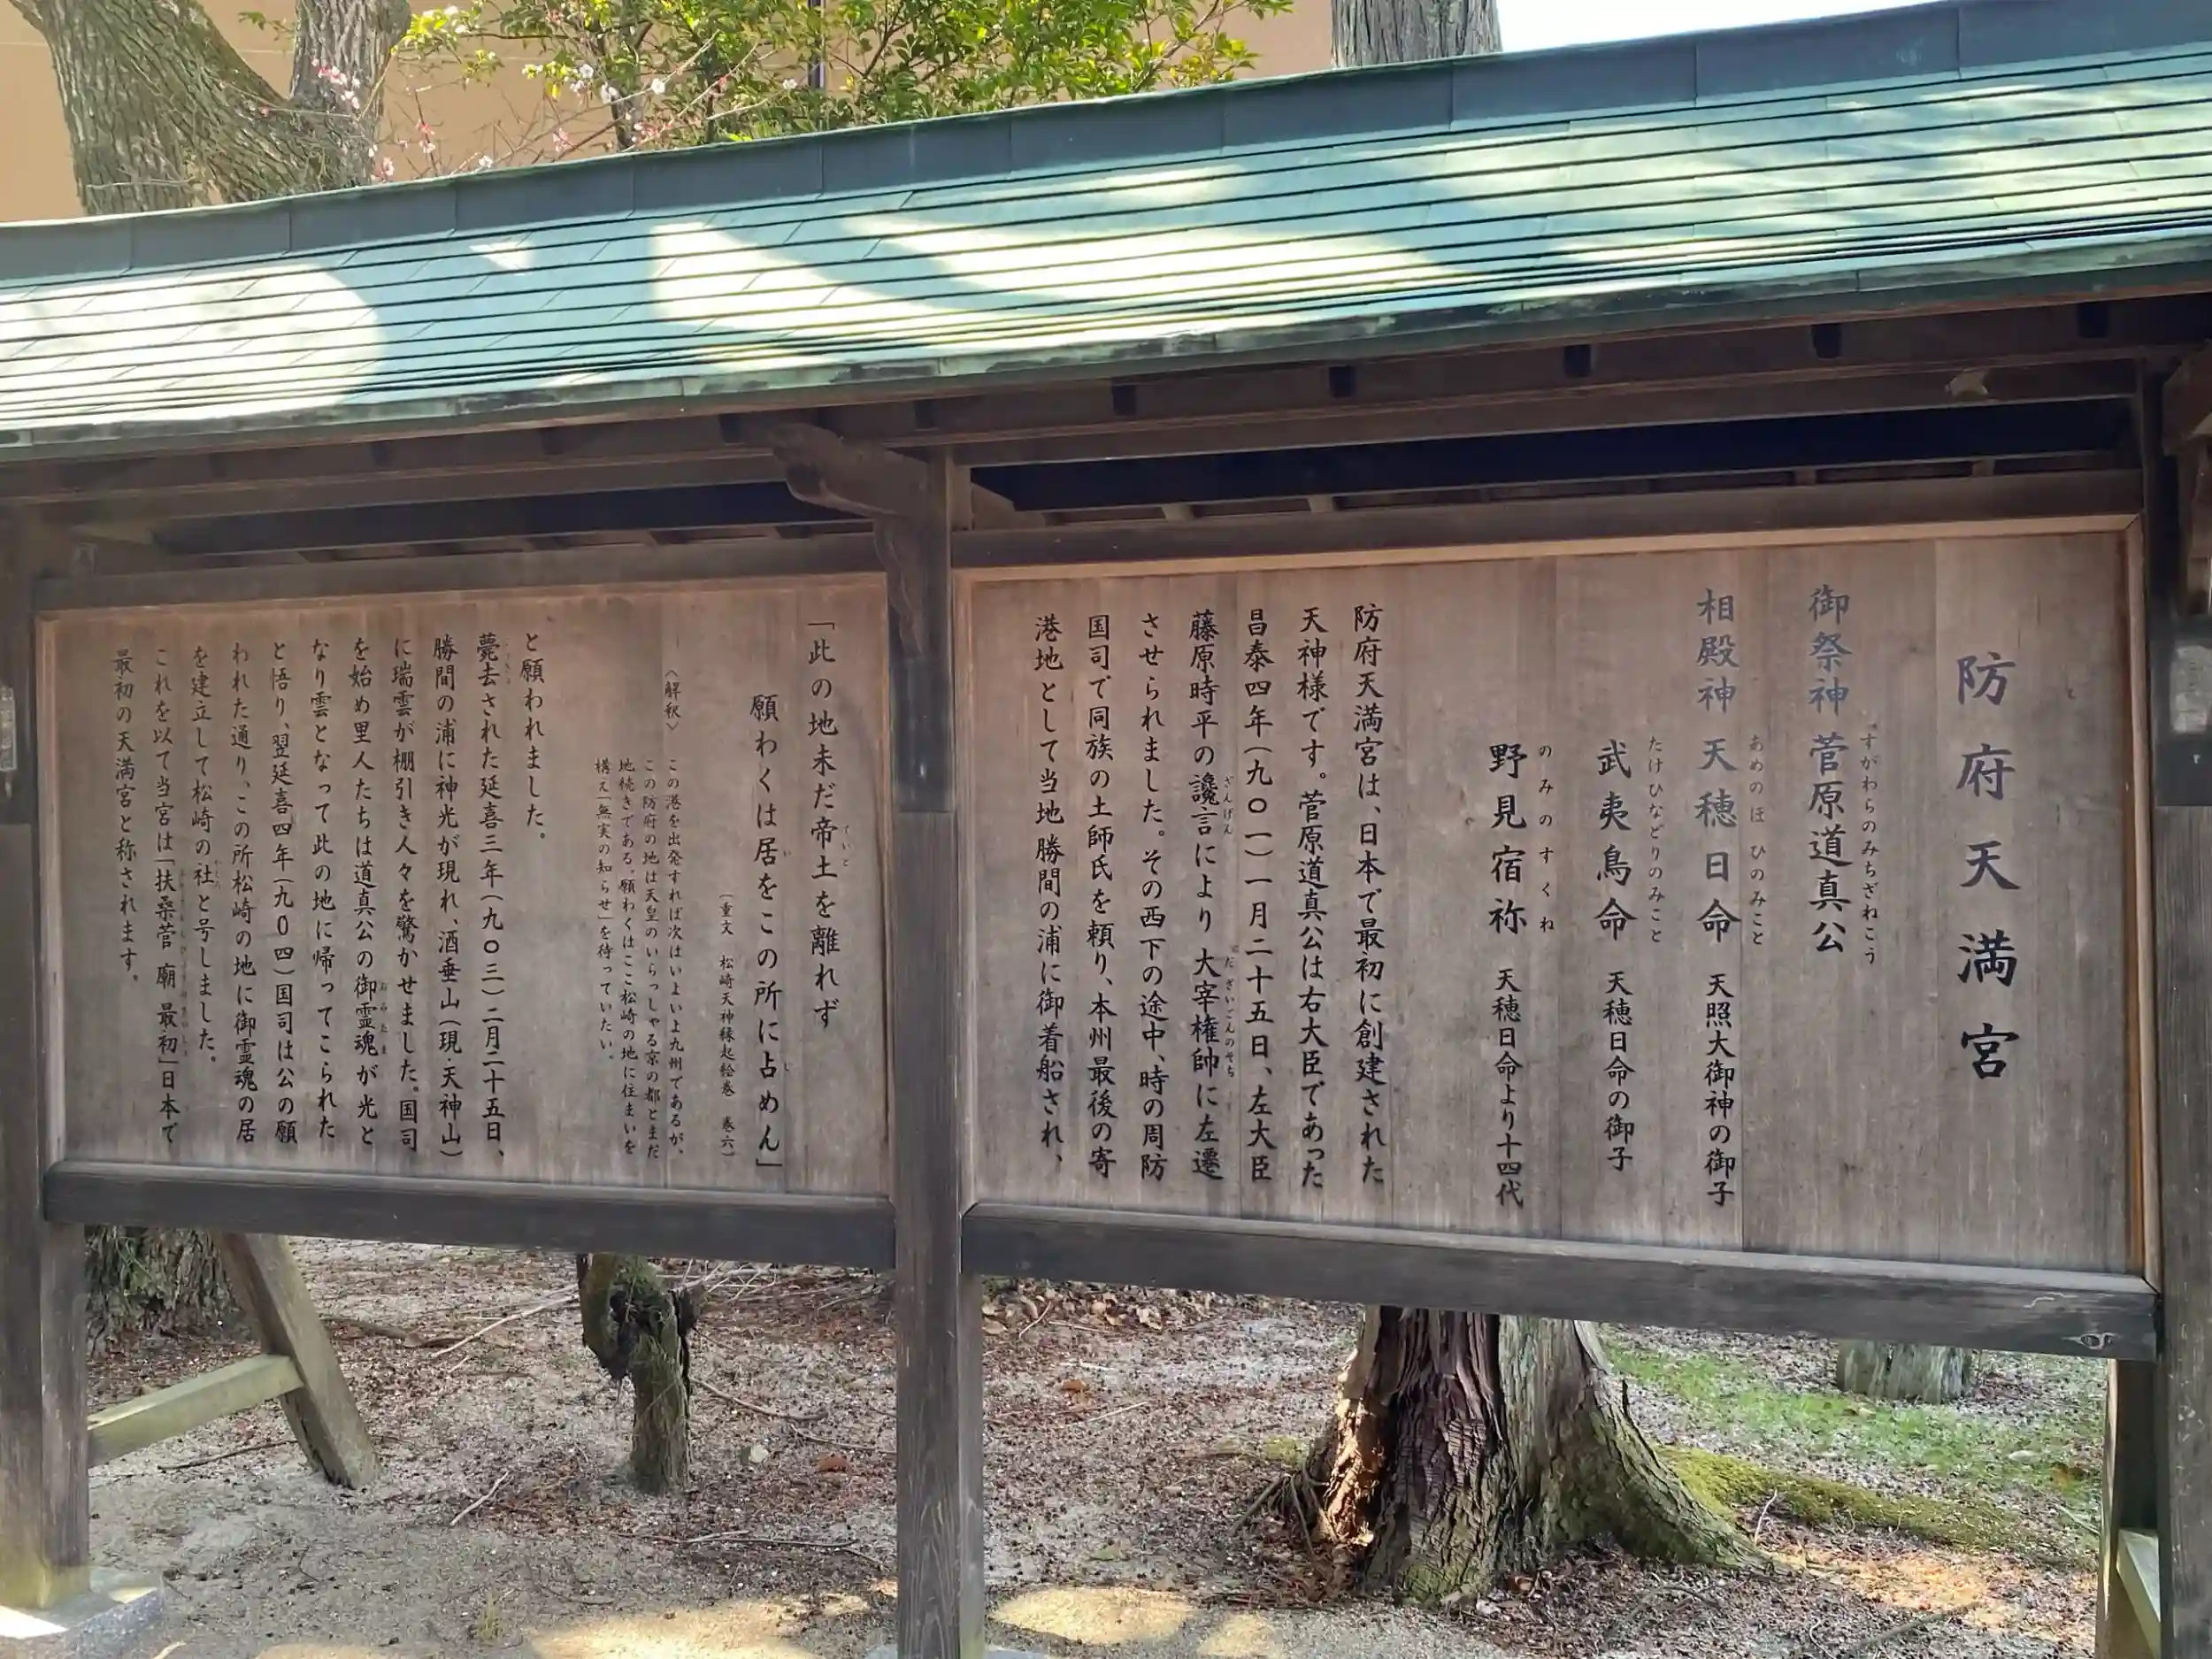 防府天満宮
御祭神 菅原道真公
すがわらのみちざねこう
相殿神 天穂日命 天照大御神の御子
あめのほひのみこと
武夷鳥命 天穂日命の御子
たけひなどりのみこと
野見宿祢 天穂日命より十四代
のみのすくね
防府天満宮は、日本で最初に創建された
天神様です。菅原道真公は右大臣であった
昌泰四年(九〇一)一月二十五日、左大臣
藤原時平の讒言により大宰権帥に左遷
ざんげん だざいごんのそち
させられました。その西下の途中、時の周防
国司で同族の土師氏を頼り、本州最後の寄
港地として当地勝間の浦に御着船され、
「此の地未だ帝土を離れず
ていと
願わくは居をこの所に占めん」
い し
(重文 松崎天神縁起絵巻 巻六)
〈解釈〉 この港を出発すれば次はいよいよ九州であるが、
この防府の地は天皇のいらっしゃる京の都とまだ
地続きである。願わくはここ松崎の地に住まいを
構え「無実の知らせ」を待っていたい。
と願われました。
薨去された延喜三年(九〇三)二月二十五日、
勝間の浦に神光が現れ、酒垂山(現・天神山)
に瑞雲が棚引き人々を驚かせました。国司
を始め里人たちは道真公の御霊魂が光と
おみたま
なり雲となって此の地に帰ってこられた
と悟り、翌延喜四年(九〇四)国司は公の願
われた通り、この所松崎の地に御霊魂の居
を建立して松崎の社と号しました。
やしろ
これを以て当宮は「扶桑菅廟最初」日本で
最初の天満宮と称されます。